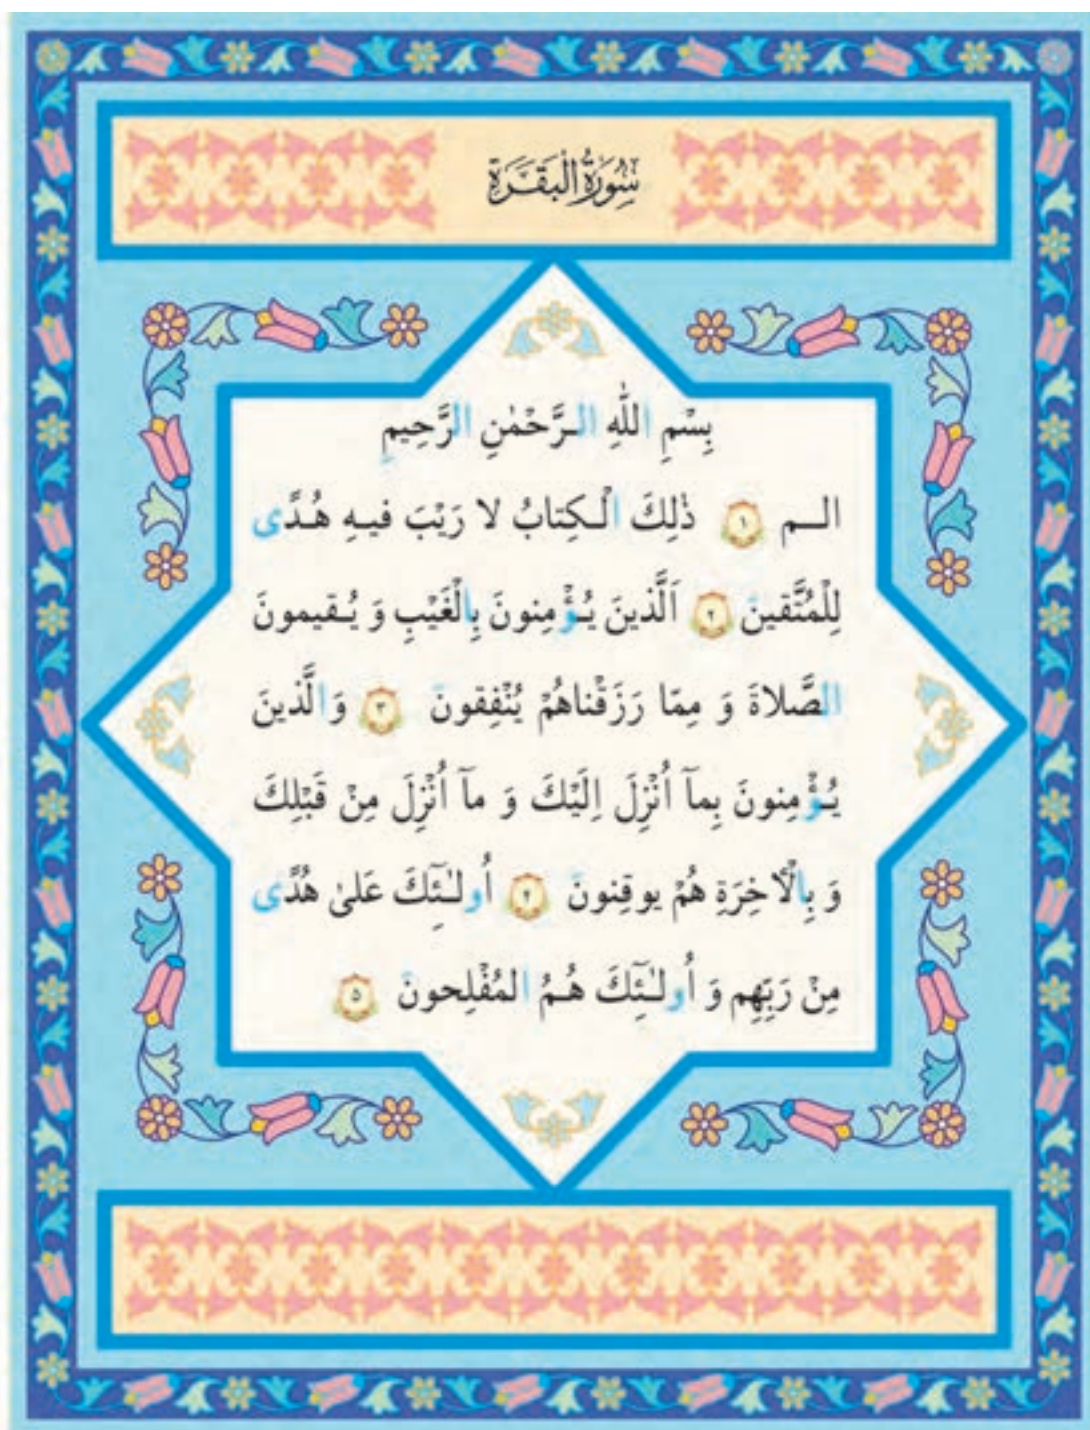 سُورَةُ الْبَقَرَةِ
بِسْمِ اللّٰهِ الرَّحْمٰنِ الرَّحِيمِ
الم ١ ذٰلِكَ الْكِتابُ لا رَيْبَ فيهِ هُدًى
لِلْمُتَّقينَ ٢ اَلَّذينَ يُؤْمِنونَ بِالْغَيْبِ وَ يُقيمونَ
الصَّلاةَ وَ مِمّا رَزَقْناهُمْ يُنْفِقونَ ٣ وَالَّذينَ
يُؤْمِنونَ بِمآ اُنْزِلَ اِلَيْكَ وَ مآ اُنْزِلَ مِنْ قَبْلِكَ
وَ بِالْاٰخِرَةِ هُمْ يوقِنونَ ۴ اُولٰئِكَ عَلىٰ هُدًى
مِنْ رَبِّهِم وَ اُولٰئِكَ هُمُ المُفْلِحونَ ۵